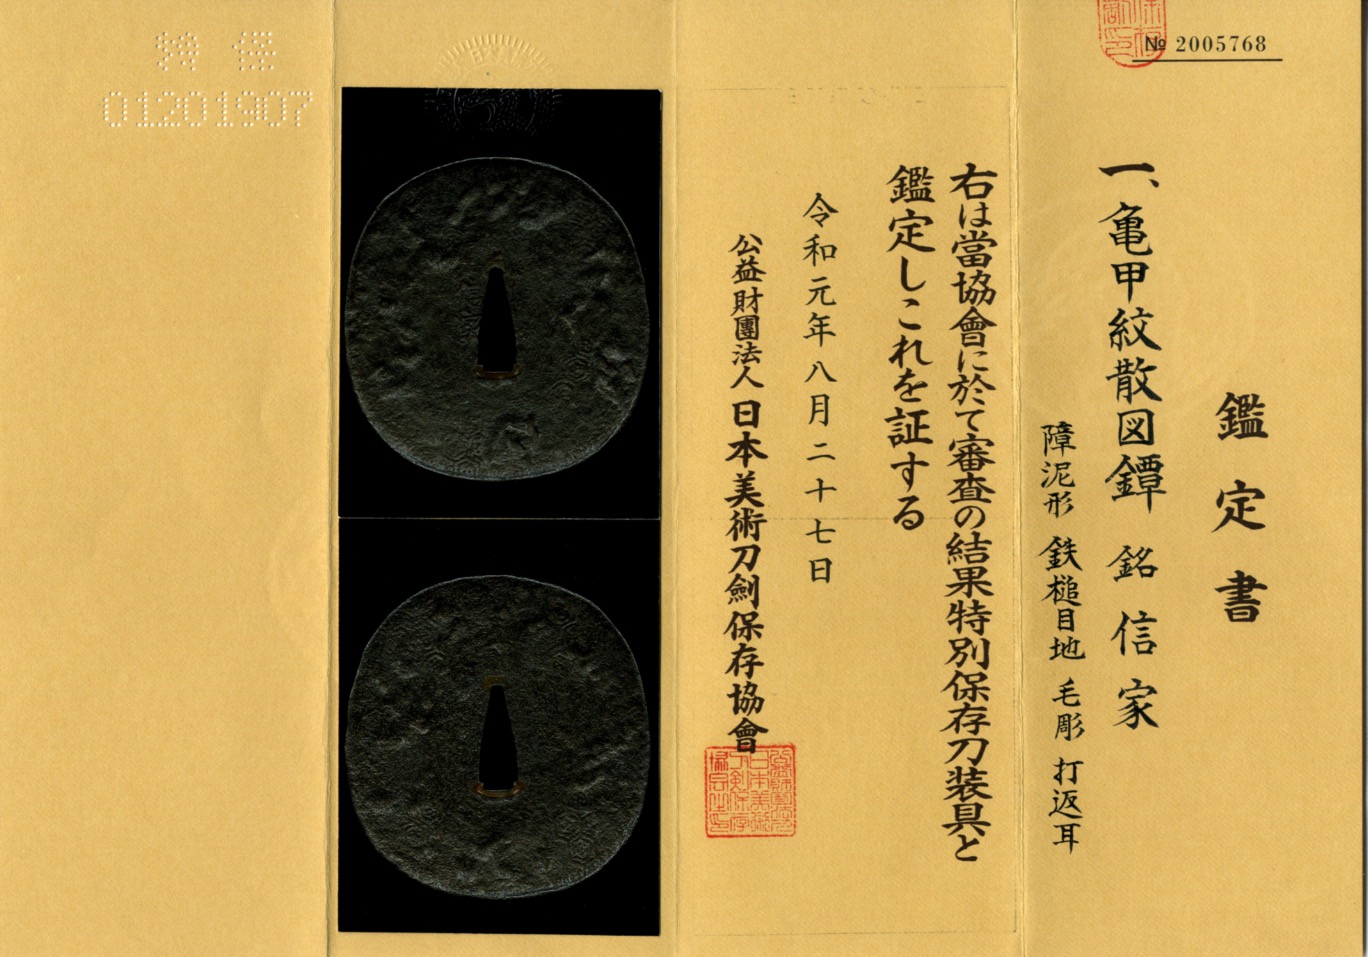 № 2005768
鑑定書
一、亀甲紋散図鐔 銘 信家
障泥形 鉄槌目地 毛彫 打返耳
右は當協會に於て審査の結果特別保存刀装具と
鑑定しこれを証する
令和元年八月二十七日
公益財團法人 日本美術刀劍保存協會
01201907